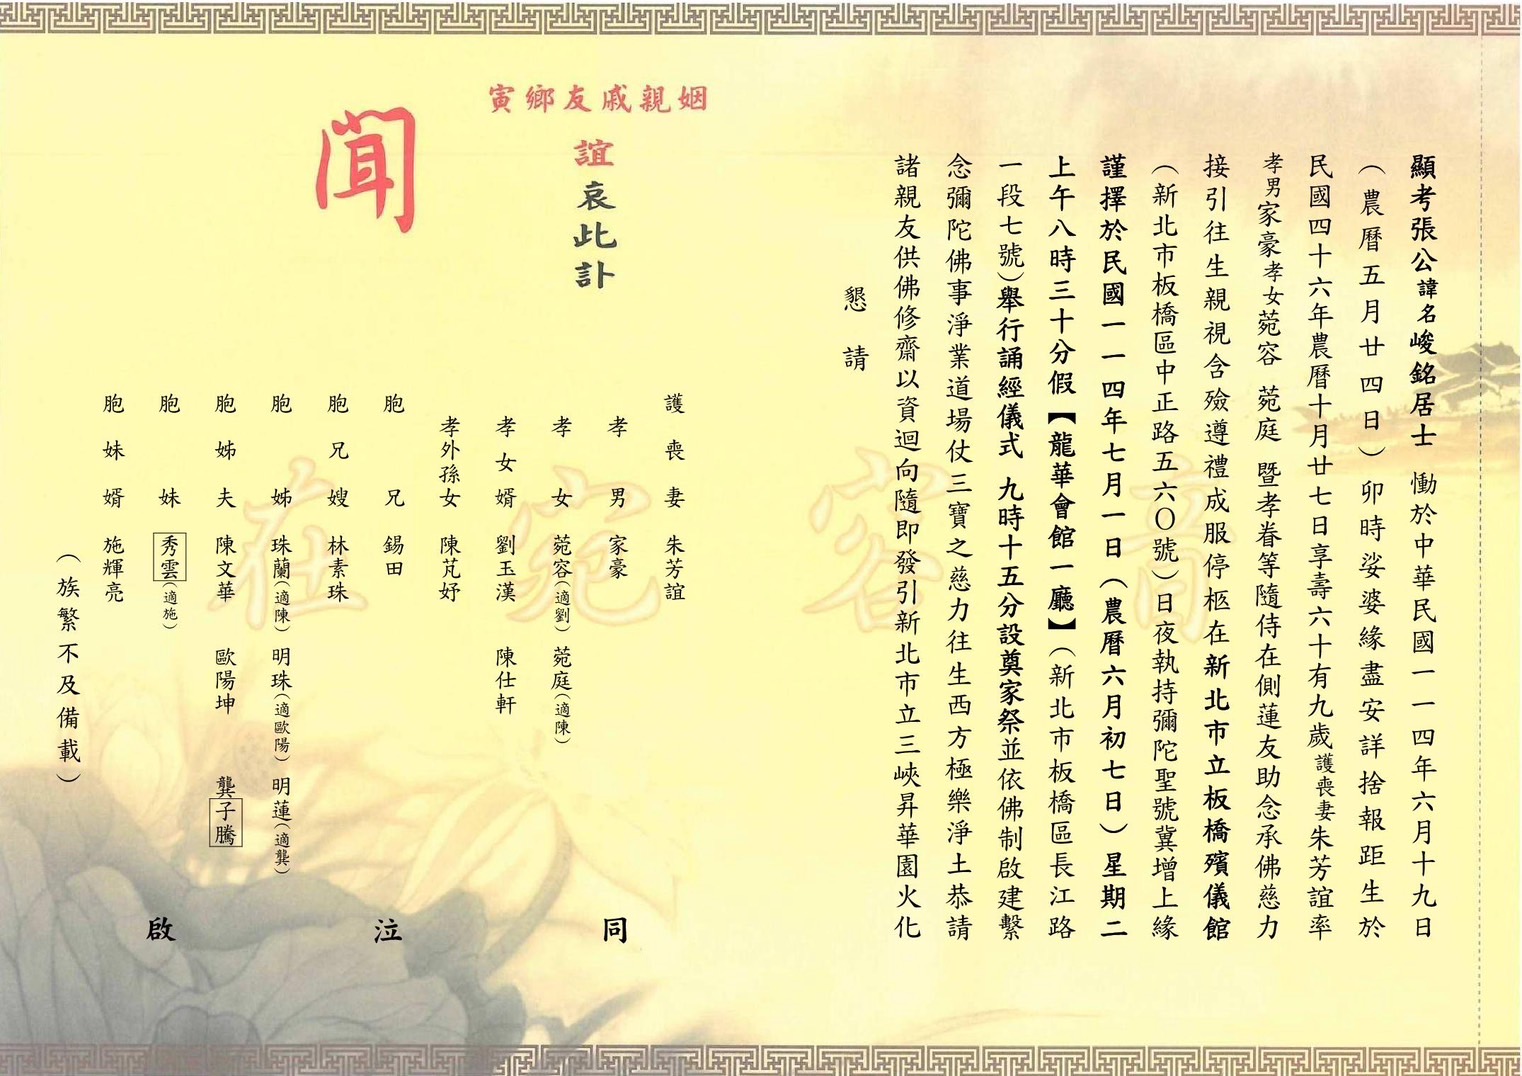 顯考張公諱名峻銘居士 慟於中華民國一一四年六月十九日
（農曆五月廿四日）卯時娑婆緣盡安詳捨報距生於
民國四十六年農曆十月廿七日享壽六十有九歲護喪妻朱芳誼率
孝男家豪孝女菀容 菀庭 暨孝眷等隨侍在側蓮友助念承佛慈力
接引往生親視含殮遵禮成服停柩在新北市立板橋殯儀館
（新北市板橋區中正路五六〇號）日夜執持彌陀聖號冀增上緣
謹擇於民國一一四年七月一日（農曆六月初七日）星期二
上午八時三十分假【龍華會館一廳】（新北市板橋區長江路
一段七號）舉行誦經儀式 九時十五分設奠家祭並依佛制啟建繫
念彌陀佛事淨業道場仗三寶之慈力往生西方極樂淨土恭請
諸親友供佛修齋以資迴向隨即發引新北市立三峽昇華園火化
懇請
姻親戚友鄉寅
誼哀此訃
聞
護喪妻 朱芳誼
孝男 家豪
孝女 菀容（適劉） 菀庭（適陳）
孝女婿 劉玉漢 陳仕軒
孝外孫女 陳芃妤
胞兄 錫田
胞兄嫂 林素珠
胞姊 珠蘭（適陳） 明珠（適歐陽） 明蓮（適龔）
胞姊夫 陳文華 歐陽坤 龔子騰
胞妹 秀雲（適施）
胞妹婿 施輝亮
（族繁不及備載）
同泣啟
在宛容音